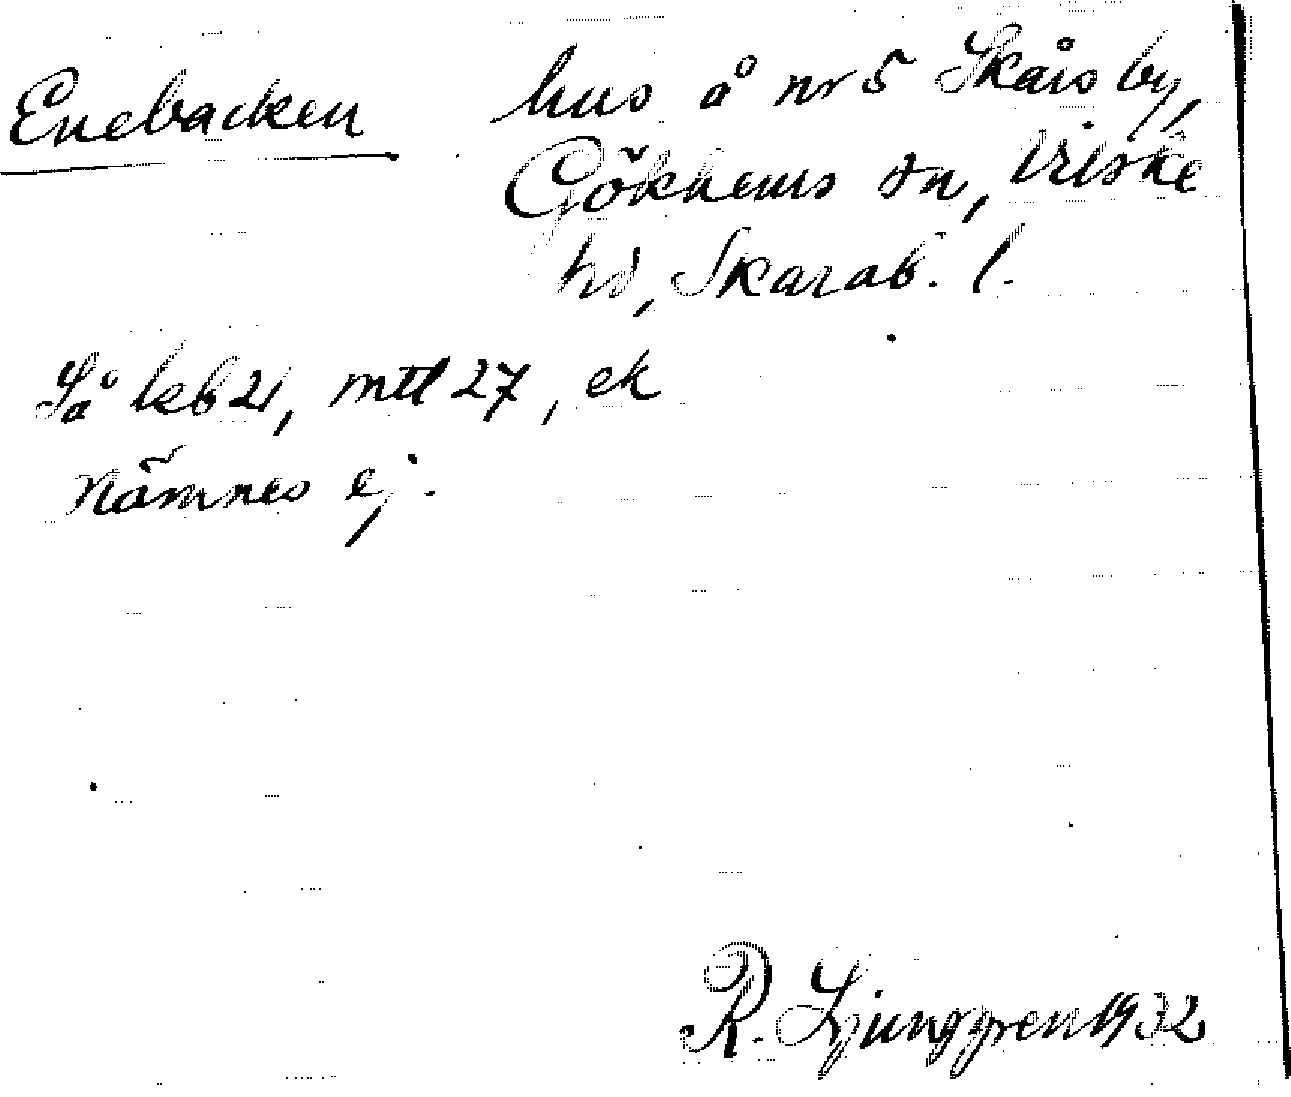 Enebacken hus å nr 5 Skårs by,
Gökhems sn, Vilske
hd, Skarab. l.
Så kb 21, mtl 27, ek
Nämnes ej.
R. Ljunggren 1932